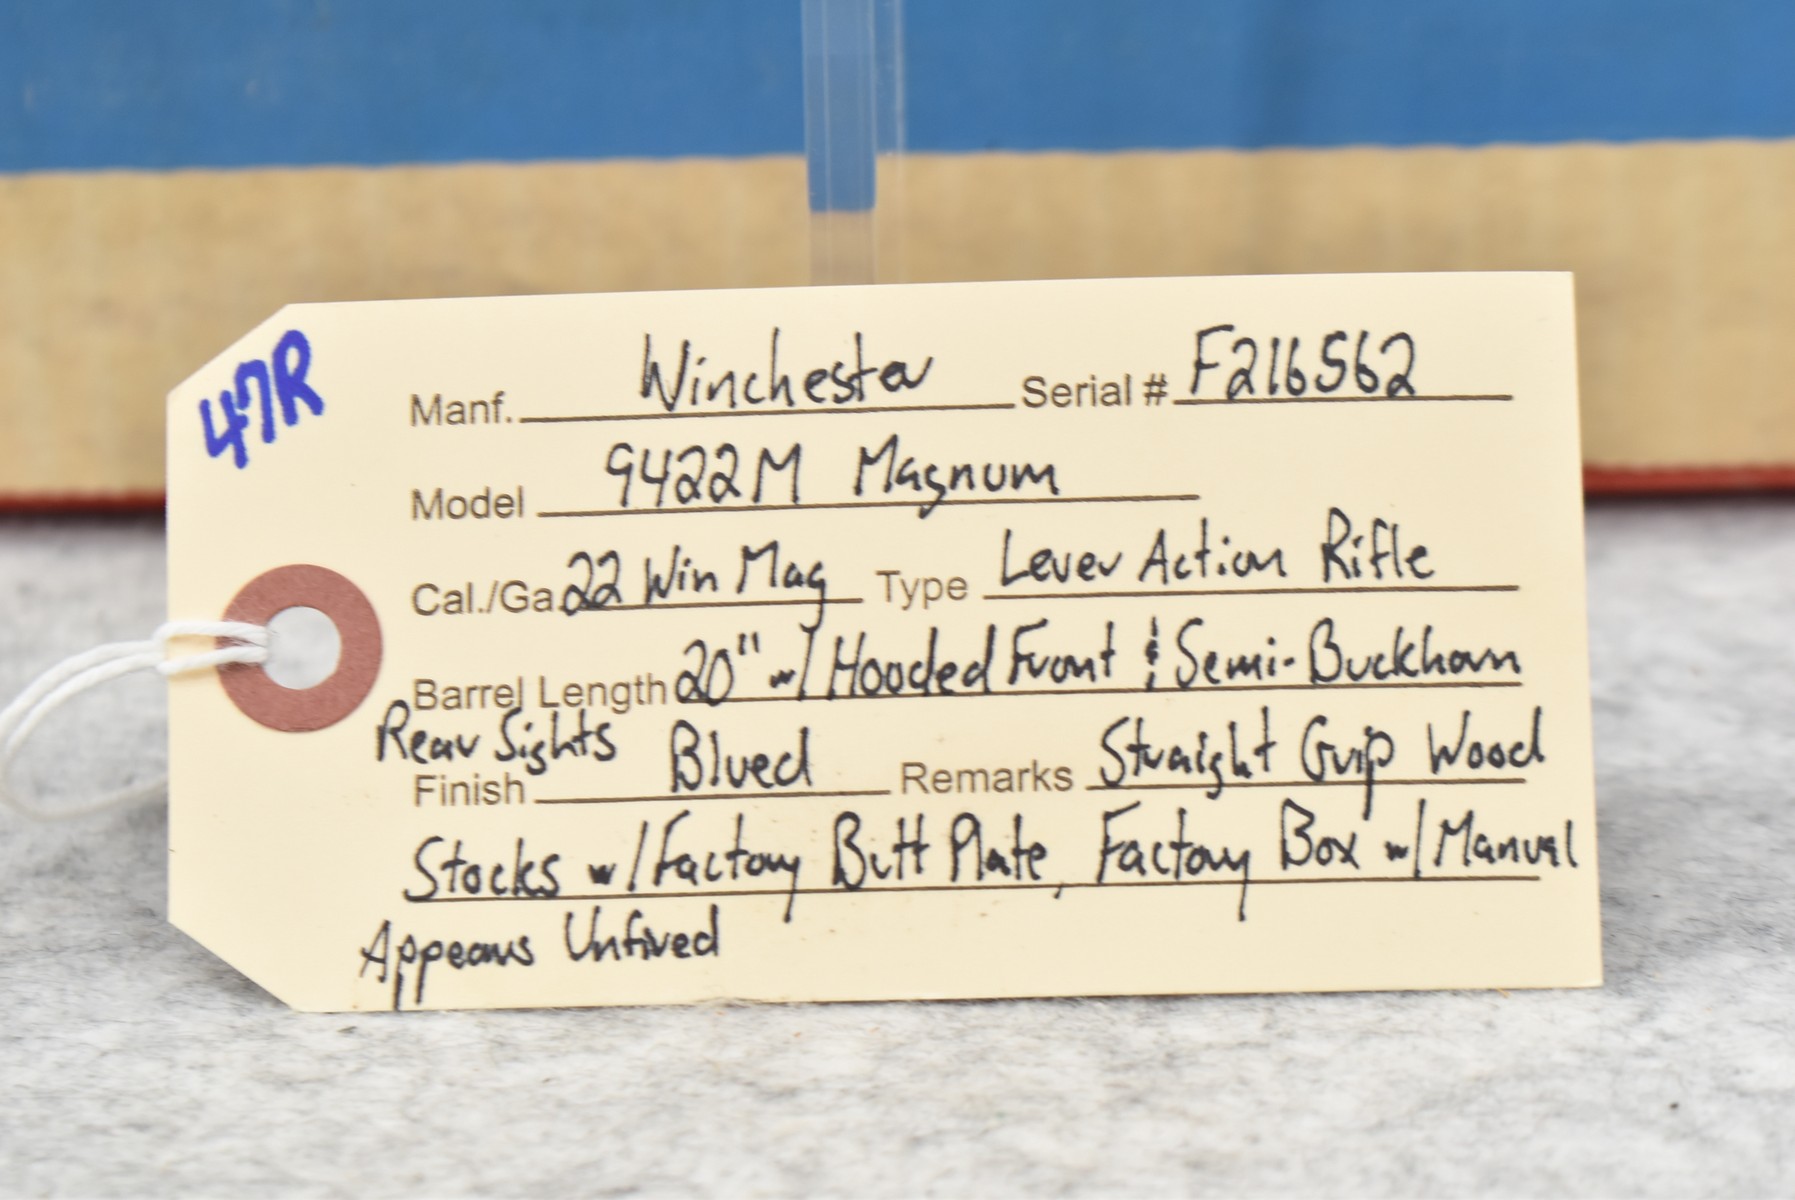 47R
Manf. Winchester Serial # F216562
Model 9422M Magnum
Cal./Ga. 22 Win Mag Type Lever Action Rifle
Barrel Length 20" w/ Hooded Front & Semi-Buckhorn
Rear Sights
Finish Blued Remarks Straight Grip Wood
Stocks w/ Factory Butt Plate, Factory Box w/ Manual
Appears Unfired